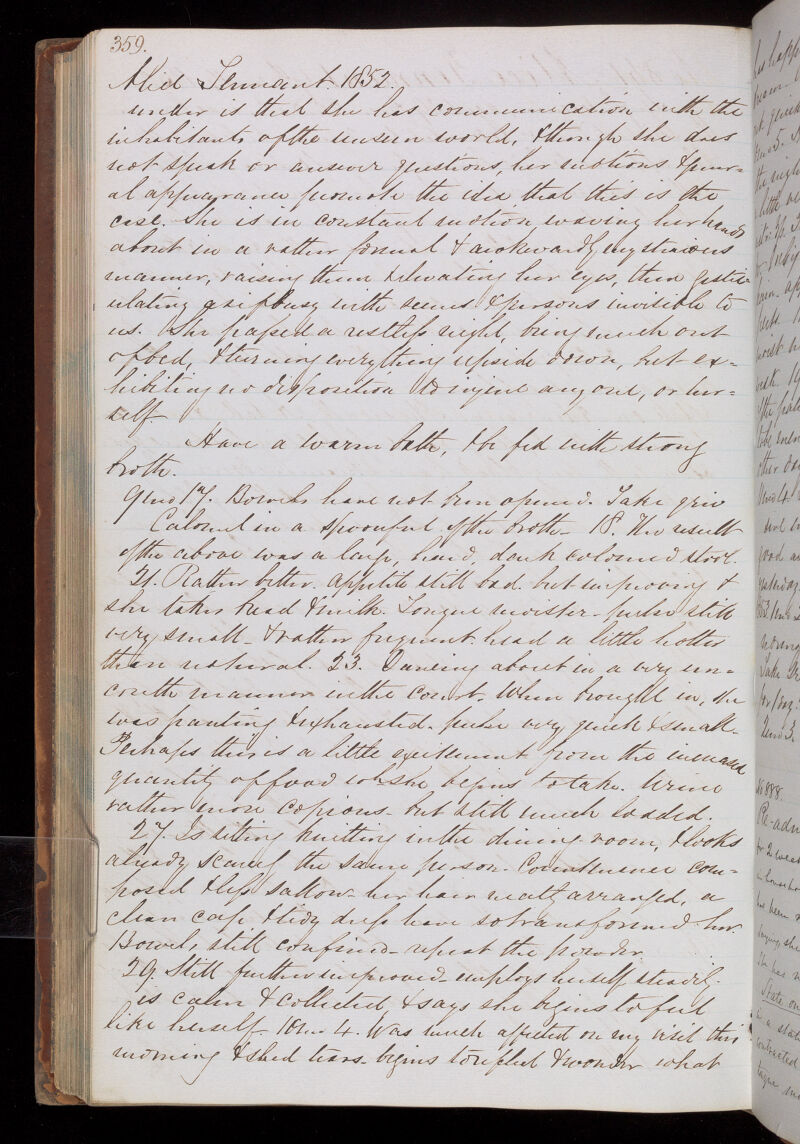 359.
Alice Tennant. 1852.
under is that she has communication with the
inhabitants of the unseen world, & though she does
not speak or answer questions, her motions & gener=
al appearance promote the idea that this is the
case. She is in constant motion waving her hands
about in a rather formal & awkwardly mysterious
manner, raising them & elevating her eyes, then gestic=
ulating as if busy with scenes & persons invisible to
us. She passed a restless night, being much out
of bed, & turning everything upside down, but ex=
hibiting no disposition to injure any one, or her=
self.
Have a warm bath, & be fed with strong
broth.
9mo 17. Bowels have not been opened. Take griv
Calomel in a spoonful of the broth - 18. The result
of the above was a large, hard, dark coloured stool.
21. Rather better. appetite still bad. but improving &
she takes bread & milk. Tongue moister - pulse still
very small - & rather frequent. head a little hotter
than natural. 23. Dancing about in a very un=
couth manner in the court. When brought in, she
was panting & exhausted - pulse very quick & small -
Perhaps this is a little excitement from the increased
quantity of food wh she begins to take. Urine
rather more copious - but still much loaded.
27. Is sitting knitting in the dining room, & looks
already scarcely the same person. Countenance com=
posed & less sallow - her hair neatly arranged, a
clean cap & tidy dress have so transformed her
Bowels still confined - repeat the powder
29. Still further improved - employs herself steadily.
is calm & collected, & says she begins to feel
like herself - 10mo 4. Was much affected on my visit this
morning & shed tears - begins to reflect & wonder what